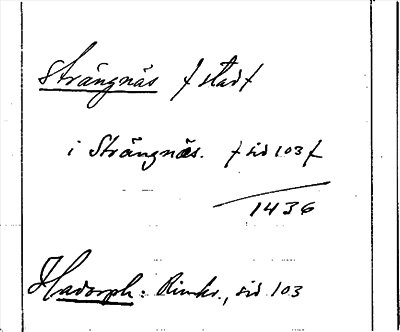 Strängnäs / stad /
i Strängnäs. / sid 103 /
1436
Hadorph: Rimkr., sid 103